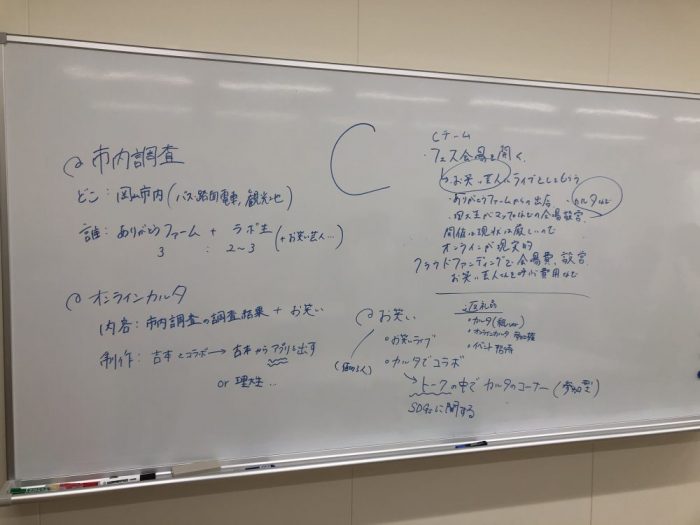 市内調査
どこ：岡山市内(バス,路面電車,観光地)
誰：ありがとうファーム + ラボ生 (+お笑い芸人…)
3 : 2〜3
オンラインカルタ
内容：市内調査の調査結果 + お笑い
制作：吉本とコラボ→吉本からアプリを出す
or 理大生…
C
Cチーム
・フェス会場を開く
お笑い芸人ライブをしてもらう
・ありがとうファームからの出店 ・カルタなど
開催は現状は厳しいので
オンラインが現実的
クラウドファンディングで会場費、設営
お笑い芸人さんを呼ぶ費用など
返礼品
・カルタ
・オンラインカルタ 参加権
・イベント招待
お笑い
・お笑いライブ
・カルタでコラボ
→トークの中でカルタのコーナー(参加型)
SDGsに関する